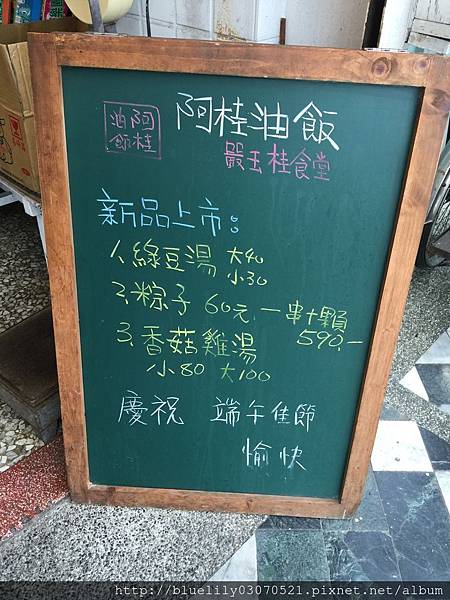 阿桂油飯
阿桂油飯
嚴玉桂食堂
新品上市:
1.綠豆湯 大40
小30
2.粽子 60元 一串十顆
590.-
3.香菇雞湯
小80 大100
慶祝 端午佳節
愉快
http://bluelily03070521.pixnet.net/album